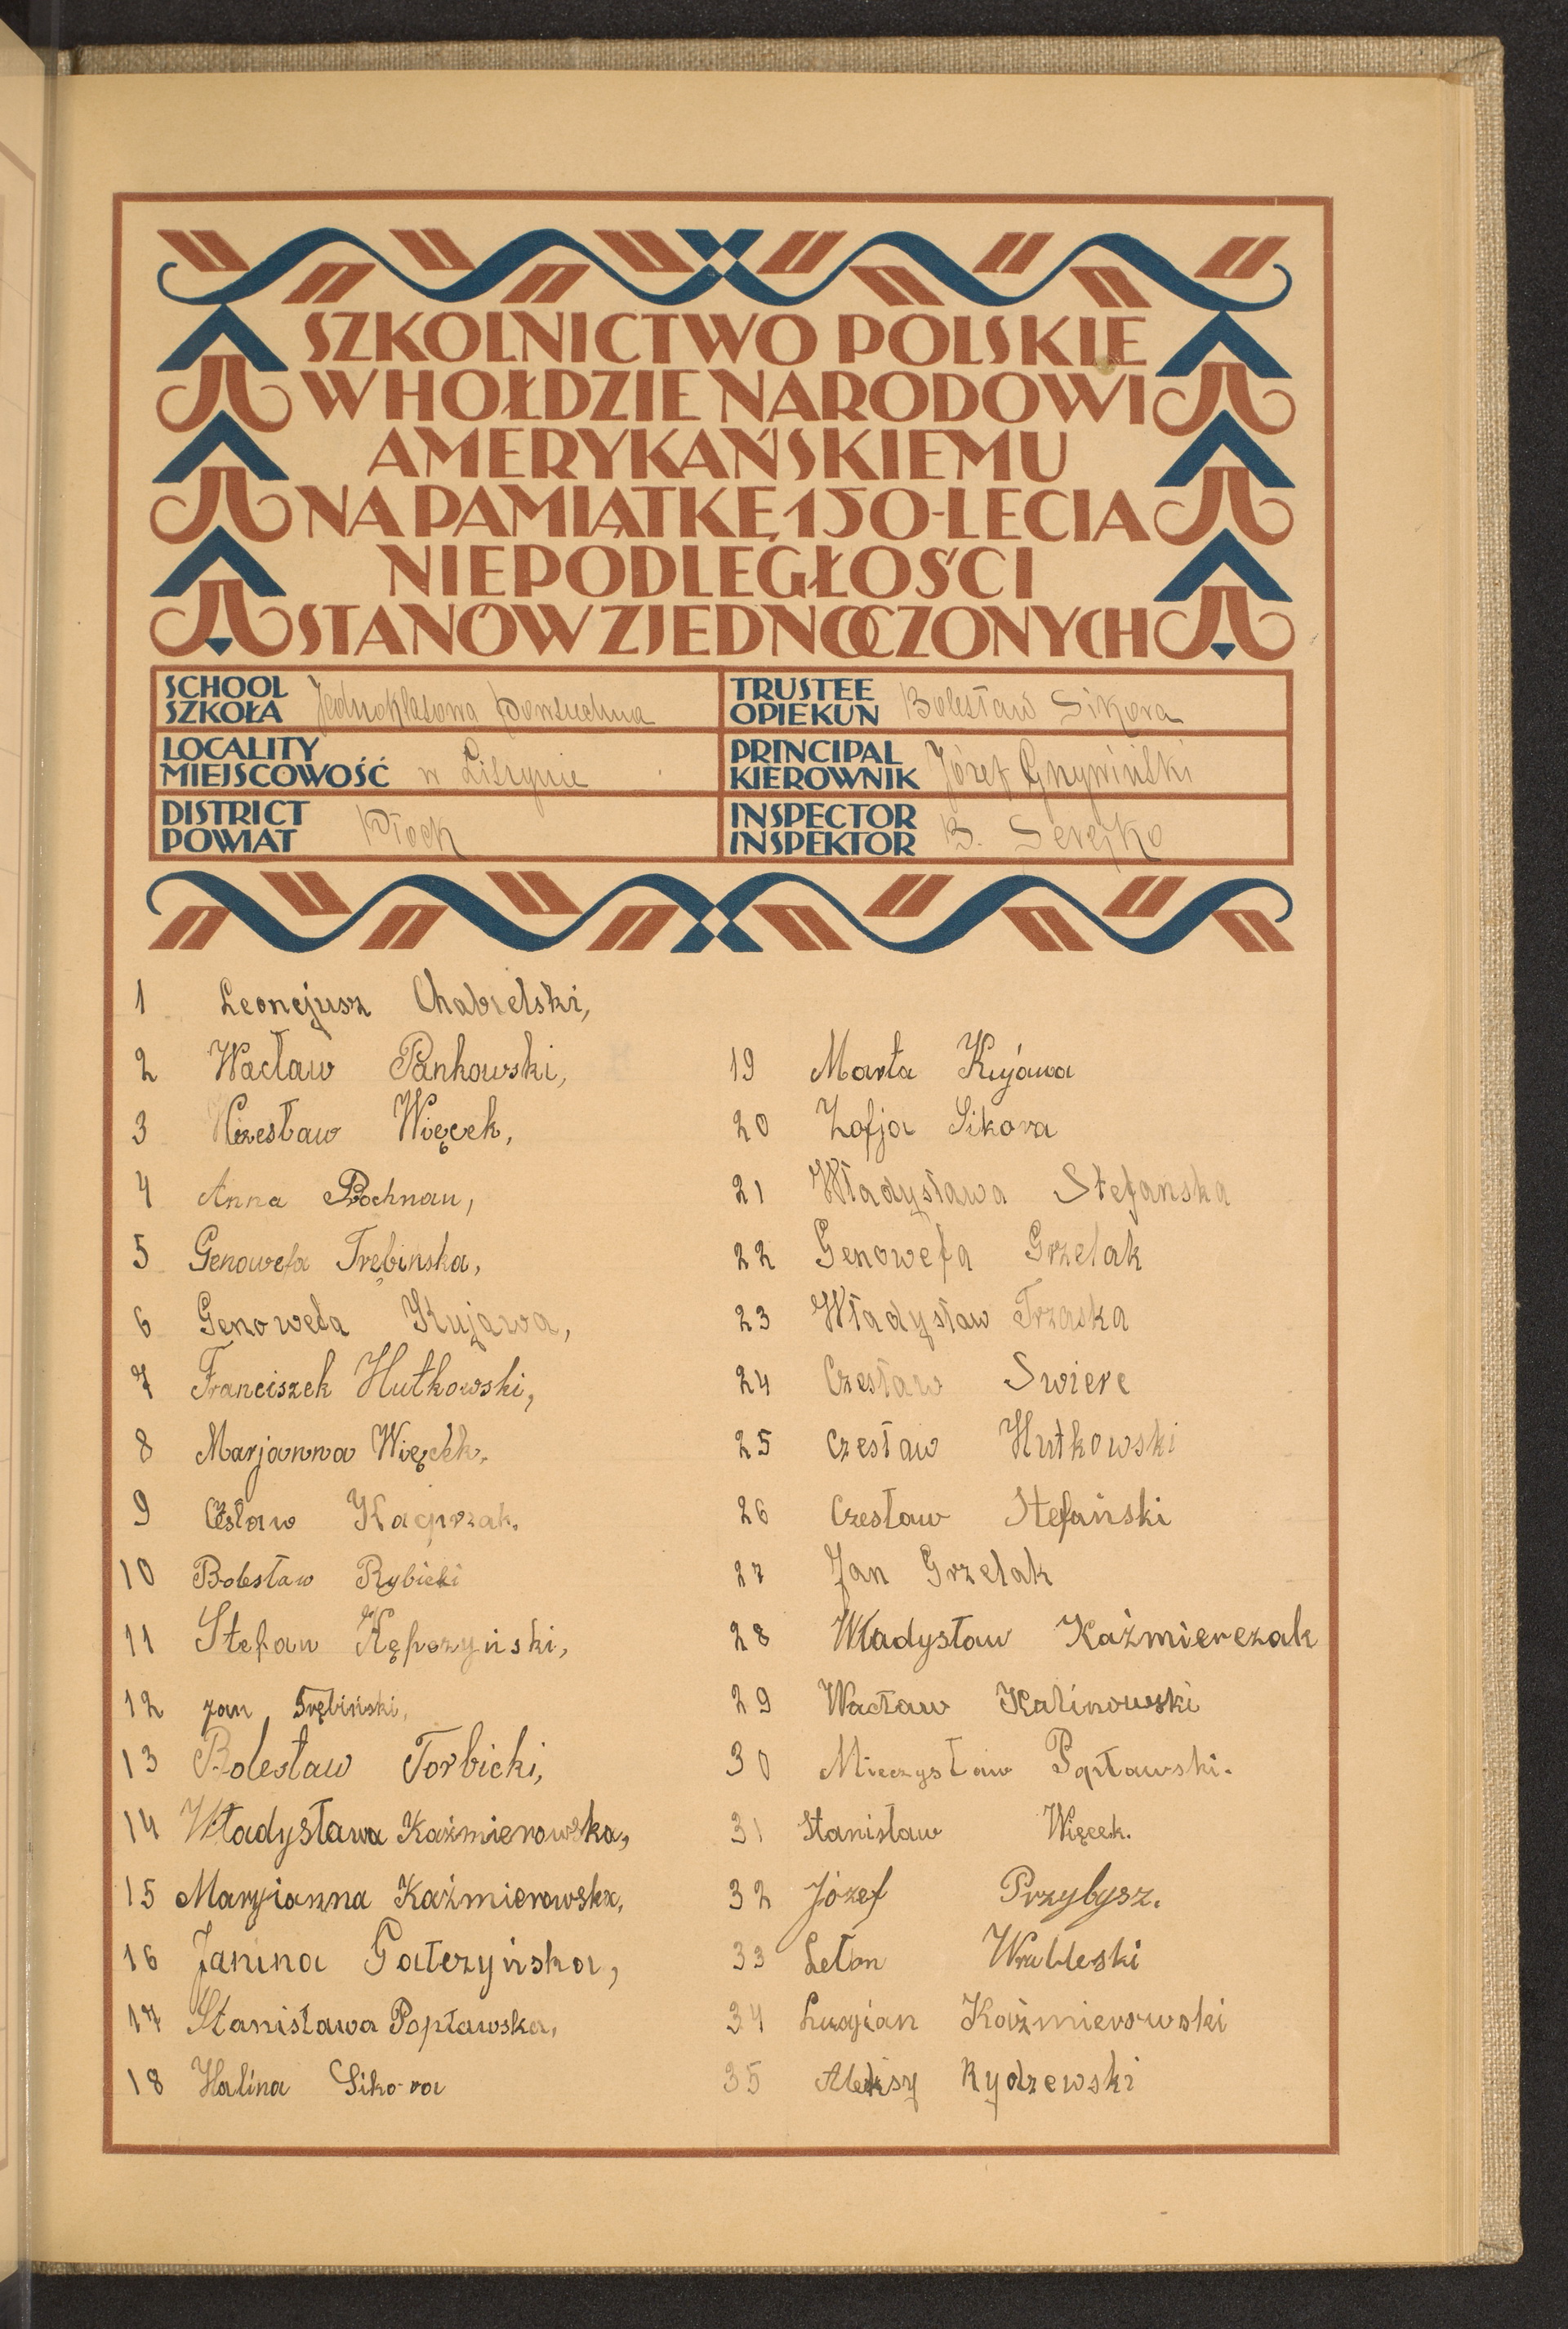 SZKOLNICTWO POLSKIE
W HOŁDZIE NARODOWI
AMERYKAŃSKIEMU
NA PAMIĄTKĘ 150-LECIA
NIEPODLEGŁOŚCI
STANÓW ZJEDNOCZONYCH
SCHOOL
SZKOŁA Jednoklasowa Powszechna
LOCALITY
MIEJSCOWOŚĆ w Liszynie
DISTRICT
POWIAT Płock
TRUSTEE
OPIEKUN Bolesław Sikora
PRINCIPAL
KIEROWNIK Józef Gnywiński
INSPECTOR
INSPEKTOR B. Serejko
1 Leoncjusz Chabielski,
2 Wacław Pankowski,
3 Więcek,
4 Anna Pochnau,
5 Genowefa Trębinska,
6 Genowefa Kujawa,
7 Franciszek Hutkowski,
8 Marjanna Więcek,
9 Kacprzak.
10 Bolesław Rybicki
11 Stefan Kępczyński,
12 Jan Trębiński,
13 Bolesław Torbicki,
14 Władysława Kaźmierowska,
15 Maryianna Kaźmierowska,
16 Janina Gałczyńska,
17 Stanisława Popławska,
18 Halina Sikora
19 Marta Kujawa
20 Zofja Sikora
21 Władysława Stefanska
22 Genowefa Grzelak
23 Władysław Trzaska
24 Czesław Swierc
25 Czesław Hutkowski
26 Czesław Stefański
27 Jan Grzelak
28 Władysław Kaźmierczak
29 Wacław Kalinowski
30 Mieczysław Popławski.
31 Stanisław Więcek.
32 Józef Przybysz.
33 Wrubleski
34 Lucyian Kaźmierowski
35 Aleksy Rydzewski